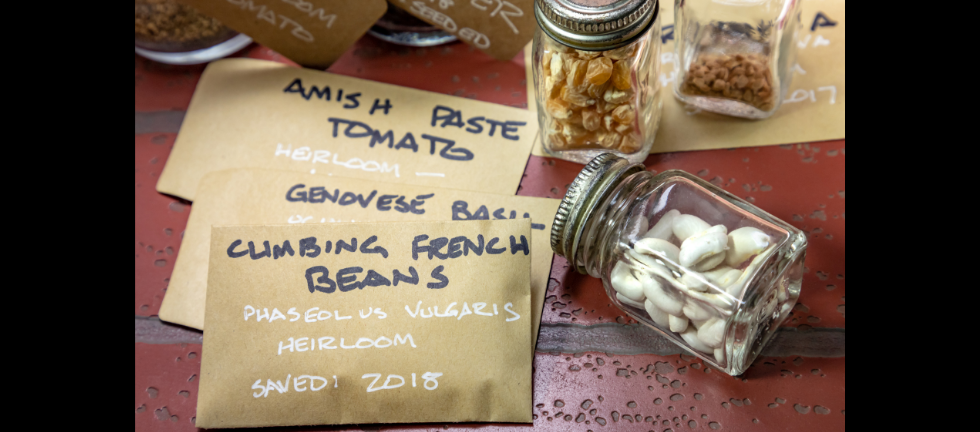 TOMATO
SEED
AMISH PASTE
TOMATO
HEIRLOOM —
2017
GENOVESE BASIL
CLIMBING FRENCH
BEANS
PHASEOLUS VULGARIS
HEIRLOOM
SAVED: 2018